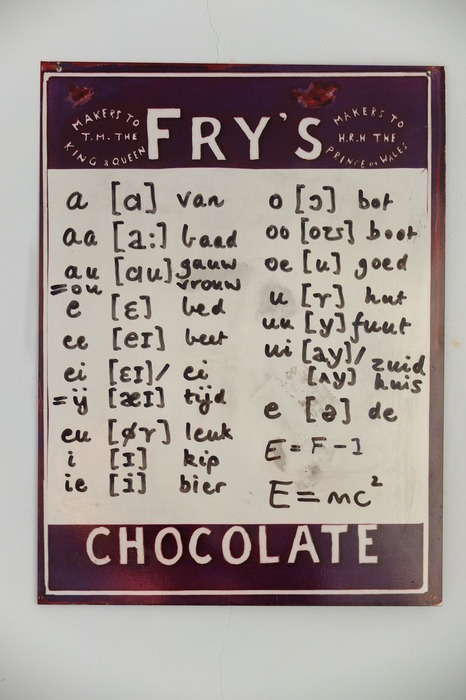 MAKERS TO
T.M. THE
KING & QUEEN
FRY'S
MAKERS TO
H.R.H THE
PRINCE OF WALES
a [ɑ] van
aa [a:] baad
au [ɑu] gauw
=ou vrouw
e [ɛ] bed
ee [eɪ] beet
ei [ɛɪ]/ ei
=ij [æɪ] tijd
eu [øʏ] leuk
i [ɪ] kip
ie [i] bier
o [ɔ] bot
oo [oʊ] boot
oe [u] goed
u [ʏ] hut
uu [y] fuut
ui [ay]/ zuid
[ʌy] huis
e [ə] de
E = F - 1
E = mc²
CHOCOLATE